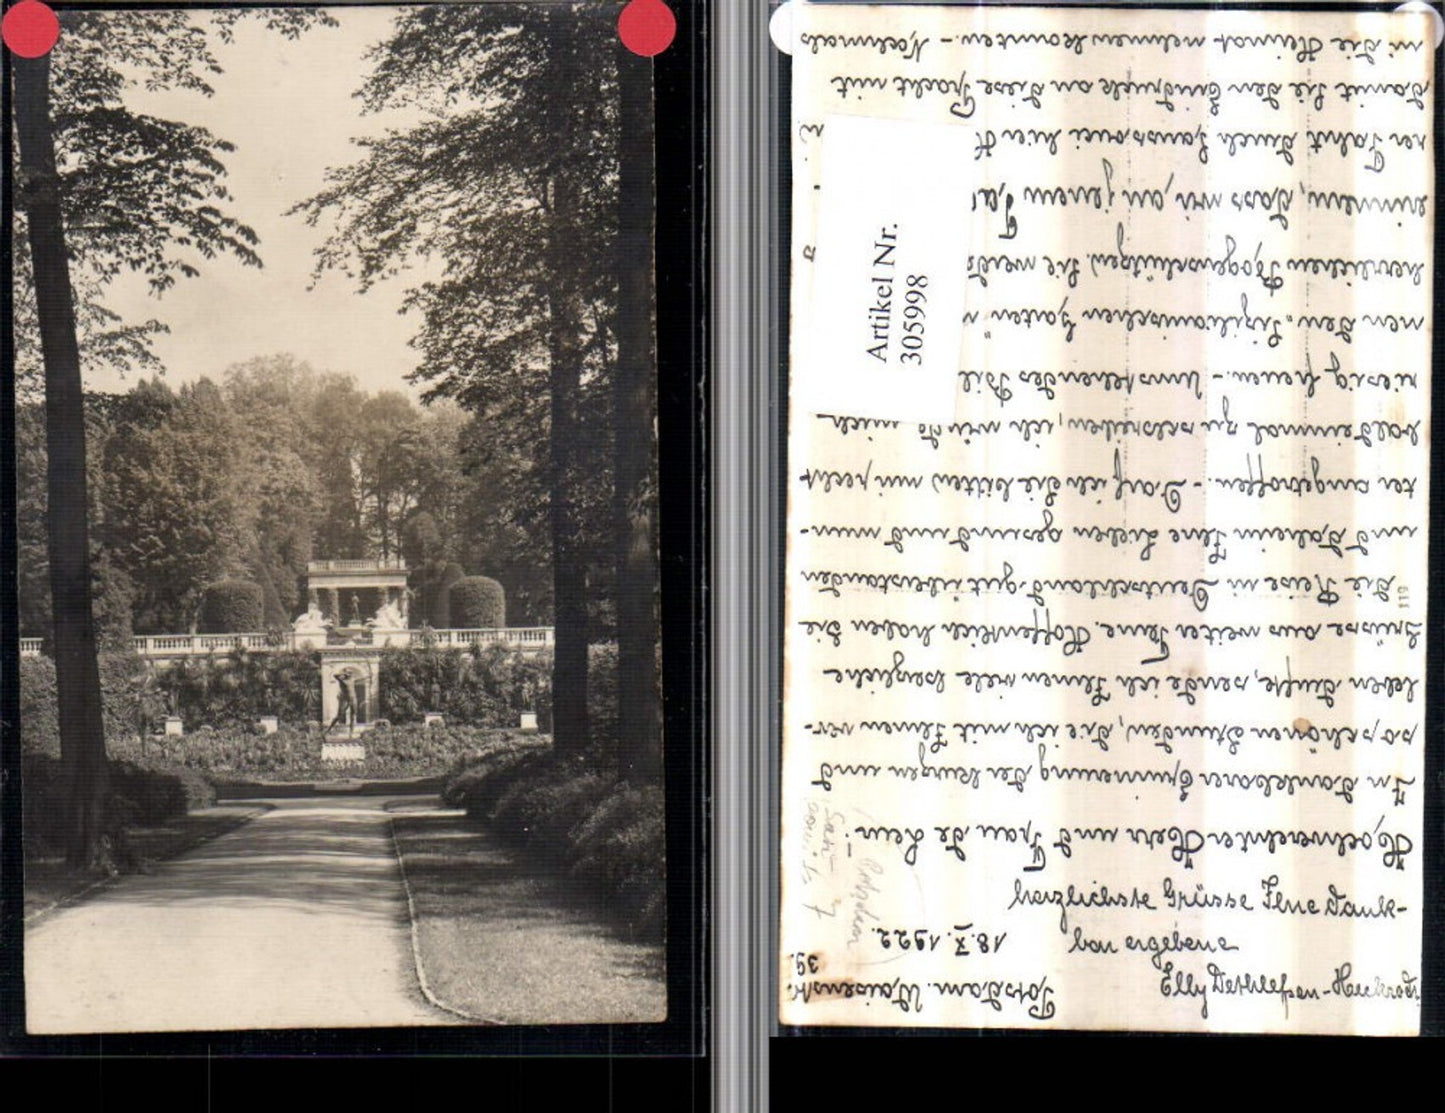 Potsdam. Waisenstr. 39.
18. X. 1922.
Hochverehrter Herr und Frau de Rein!
In dankbarer Erinnerung der langen und
so schönen Stunden, die ich mit Ihnen ver-
leben durfte, sende ich Ihnen viele herzliche
Grüsse aus weiter Ferne. Hoffentlich haben Sie
die Reise in Deutschland gut überstanden
und daheim Ihre Lieben gesund und mun-
ter angetroffen. - Darf ich Sie bitten, mir recht
bald einmal zu schreiben, ich würde mich
riesig freuen. - Umstehendes Bil
men den "Sizilianischen Garten"
herrlichen Bogenschützen. Sie werd
erinnern, dass wir, an jenem
rer Fahrt durch Sanssouci hier
damit Sie den Eindruck an diese Pracht mit
in die Heimat nehmen konnten. - Nochmals
herzlichste Grüsse Ihre dank-
bar ergebene
Elly Dethlefsen-
119
Artikel Nr.
305998